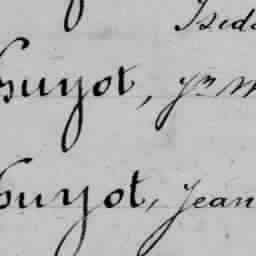 Isid
Guyot, Jn M
Guyot, Jean